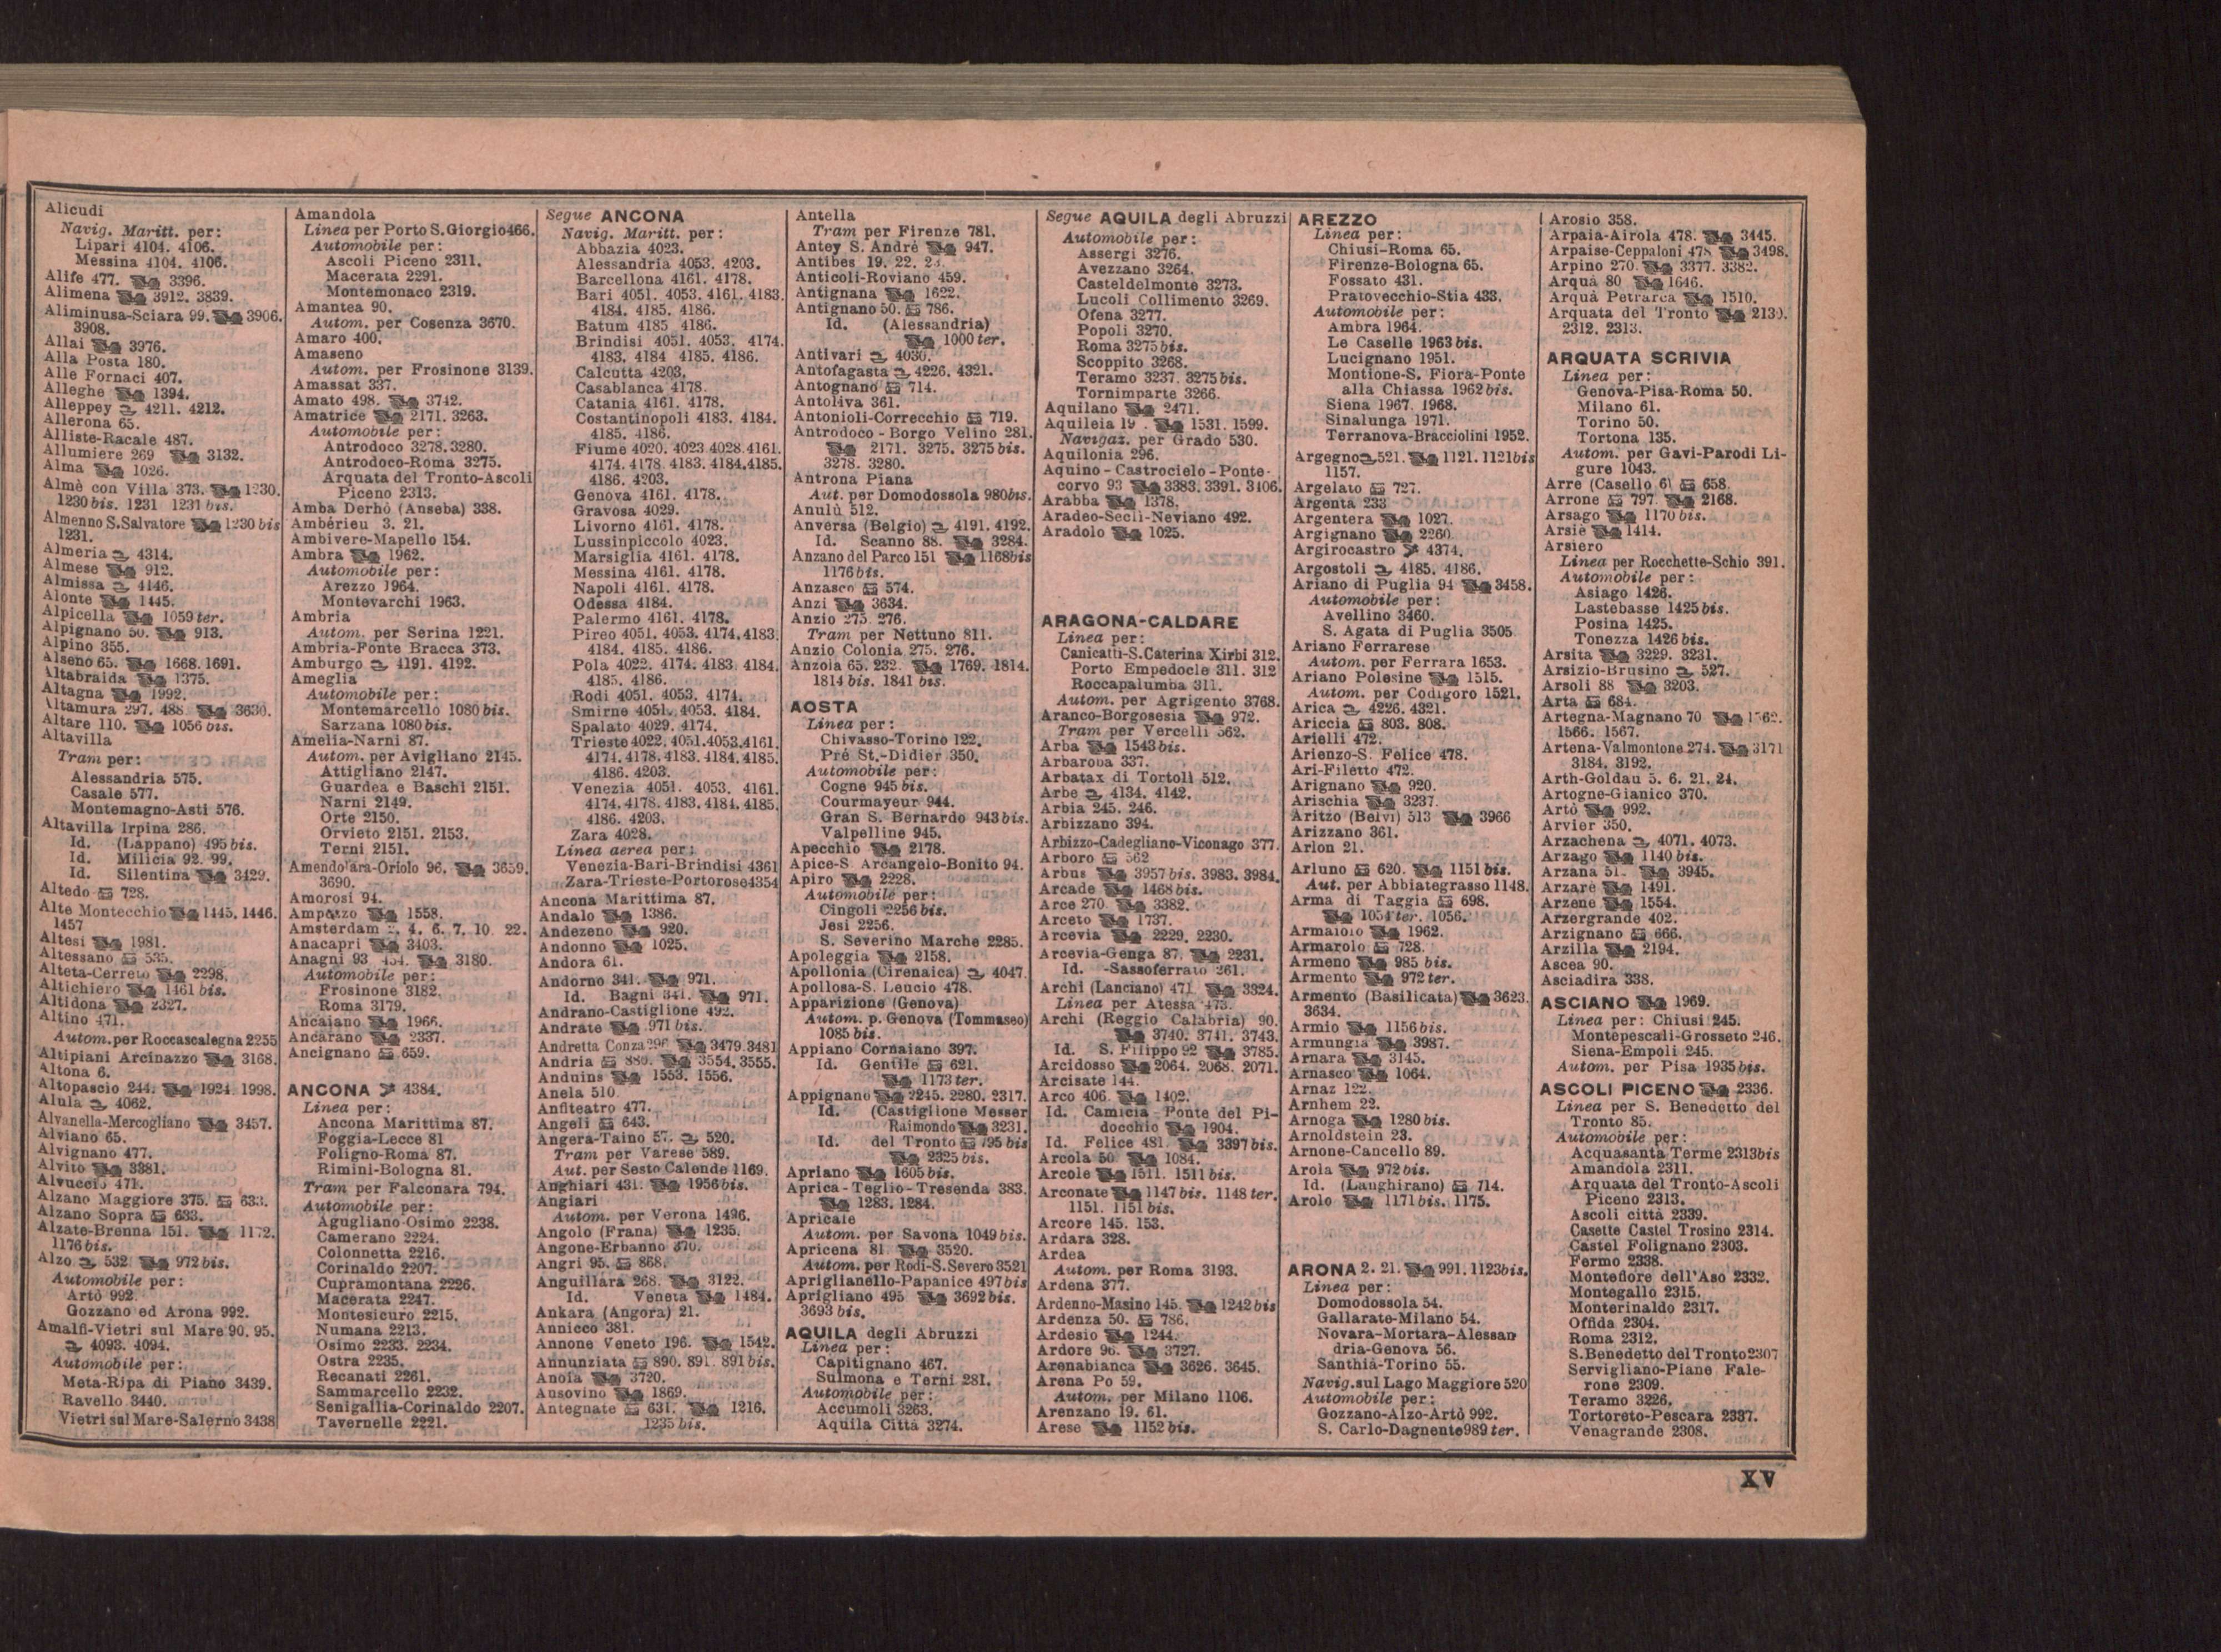 Alicudi
Navig. Maritt. per:
Lipari 4104. 4106.
Messina 4104. 4106.
Alife 477. 3396.
Alimena 3912. 3839.
Aliminusa-Sciara 99. 3906.
3908.
Allai 3976.
Alla Posta 180.
Alle Fornaci 407.
Alleghe 1394.
Alleppey 4211. 4212.
Allerona 65.
Alliste-Racale 487.
Allumiere 269 3132.
Alma 1026.
Almè con Villa 373. 1230.
1230 bis. 1231 1231 bis.
Almenno S.Salvatore 1230 bis
1231.
Almeria 4314.
Almese 912.
Almissa 4146.
Alonte 1445.
Alpicella 1059 ter.
Alpignano 50. 913.
Alpino 355.
Alseno 65. 1668. 1691.
Altabraida 1375.
Altagna 1992.
Altamura 297. 488 3630.
Altare 110. 1056 bis.
Altavilla
Tram per:
Alessandria 575.
Casale 577.
Montemagno-Asti 576.
Altavilla Irpina 286.
Id. (Lappano) 495 bis.
Id. Milicia 92. 99.
Id. Silentina 3429.
Altedo 728.
Alte Montecchio 1445. 1446.
1457
Altesi 1981.
Altessano 535.
Alteta-Cerreto 2298.
Altichiero 1461 bis.
Altidona 2327.
Altino 471.
Autom. per Roccascalegna 2255
Altipiani Arcinazzo 3168.
Altona 6.
Altopascio 244. 1924. 1998.
Alula 4062.
Alvanella-Mercogliano 3457.
Alviano 65.
Alvignano 477.
Alvito 3381.
Alvuccio 471.
Alzano Maggiore 375. 633.
Alzano Sopra 633.
Alzate-Brenna 151. 1172.
1176 bis.
Alzo 532 972 bis.
Automobile per:
Artò 992.
Gozzano ed Arona 992.
Amalfi-Vietri sul Mare 90. 95.
4093. 4094.
Automobile per:
Meta-Ripa di Piano 3439.
Ravello 3440.
Vietri sul Mare-Salerno 3438
Amandola
Linea per Porto S.Giorgio 466.
Automobile per:
Ascoli Piceno 2311.
Macerata 2291.
Montemonaco 2319.
Amantea 90.
Autom. per Cosenza 3670.
Amaro 400.
Amaseno
Autom. per Frosinone 3139.
Amassat 337.
Amato 498. 3742.
Amatrice 2171. 3263.
Automobile per:
Antrodoco 3278. 3280.
Antrodoco-Roma 3275.
Arquata del Tronto-Ascoli
Piceno 2313.
Amba Derhò (Anseba) 338.
Ambérieu 3. 21.
Ambivere-Mapello 154.
Ambra 1962.
Automobile per:
Arezzo 1964.
Montevarchi 1963.
Ambria
Autom. per Serina 1221.
Ambria-Fonte Bracca 373.
Amburgo 4191. 4192.
Ameglia
Automobile per:
Montemarcello 1080 bis.
Sarzana 1080 bis.
Amelia-Narni 87.
Autom. per Avigliano 2145.
Attigliano 2147.
Guardea e Baschi 2151.
Narni 2149.
Orte 2150.
Orvieto 2151. 2153.
Terni 2151.
Amendolara-Oriolo 96. 3659.
3690.
Amorosi 94.
Ampezzo 1558.
Amsterdam 4. 6. 7. 10. 22.
Anacapri 3403.
Anagni 93 3180.
Automobile per:
Frosinone 3182.
Roma 3179.
Ancaiano 1966.
Ancarano 2337.
Ancignano 659.
ANCONA 4384.
Linea per:
Ancona Marittima 87.
Foggia-Lecce 81
Foligno-Roma 87.
Rimini-Bologna 81.
Tram per Falconara 794.
Automobile per:
Agugliano-Osimo 2238.
Camerano 2224.
Colonnetta 2216.
Corinaldo 2207.
Cupramontana 2226.
Macerata 2247.
Montesicuro 2215.
Numana 2213.
Osimo 2233. 2234.
Ostra 2235.
Recanati 2261.
Sammarcello 2232.
Senigallia-Corinaldo 2207.
Tavernelle 2221.
Segue ANCONA
Navig. Maritt. per:
Abbazia 4023.
Alessandria 4053. 4203.
Barcellona 4161. 4178.
Bari 4051. 4053. 4161. 4183.
4184. 4185. 4186.
Batum 4185 4186.
Brindisi 4051. 4053. 4174.
4183. 4184 4185. 4186.
Calcutta 4203.
Casablanca 4178.
Catania 4161. 4178.
Costantinopoli 4183. 4184.
4185. 4186.
Fiume 4020. 4023. 4028. 4161.
4174. 4178. 4183. 4184. 4185.
4186. 4203.
Genova 4161. 4178.
Gravosa 4029.
Livorno 4161. 4178.
Lussinpiccolo 4023.
Marsiglia 4161. 4178.
Messina 4161. 4178.
Napoli 4161. 4178.
Odessa 4184.
Palermo 4161. 4178.
Pireo 4051. 4053. 4174. 4183.
4184. 4185. 4186.
Pola 4022. 4174. 4183. 4184.
4185. 4186.
Rodi 4051. 4053. 4174.
Smirne 4051. 4053. 4184.
Spalato 4029. 4174.
Trieste 4022. 4051. 4053. 4161.
4174. 4178. 4183. 4184. 4185.
4186. 4203.
Venezia 4051. 4053. 4161.
4174. 4178. 4183. 4184. 4185.
4186. 4203.
Zara 4028.
Linea aerea per:
Venezia-Bari-Brindisi 4361
Zara-Trieste-Portorose 4354
Ancona Marittima 87.
Andalo 1386.
Andezeno 920.
Andonno 1025.
Andora 61.
Andorno 341. 971.
Id. Bagni 341. 971.
Andrano-Castiglione 492.
Andrate 971 bis.
Andretta Conza 296 3479. 3481
Andria 880. 3554. 3555.
Anduins 1553. 1556.
Anela 510.
Anfiteatro 477.
Angeli 643.
Angera-Taino 57. 520.
Tram per Varese 589.
Aut. per Sesto Calende 1169.
Anghiari 431. 1956 bis.
Angiari
Autom. per Verona 1496.
Angolo (Frana) 1235.
Angone-Erbanno 370.
Angri 95. 868.
Anguillara 268. 3122.
Id. Veneta 1484.
Ankara (Angora) 21.
Annicco 381.
Annone Veneto 196. 1542.
Annunziata 890. 891. 891 bis.
Anoia 3720.
Ansovino 1869.
Antegnate 631. 1216.
1235 bis.
Antella
Tram per Firenze 781.
Antey S. André 947.
Antibes 19. 22.
Anticoli-Roviano 459.
Antignana 1622.
Antignano 50. 786.
Id. (Alessandria)
1000 ter.
Antivari 4030.
Antofagasta 4226. 4321.
Antognano 714.
Antoliva 361.
Antonioli-Correcchio 719.
Antrodoco - Borgo Velino 281.
2171. 3275. 3275 bis.
3278. 3280.
Antrona Piana
Aut. per Domodossola 980 bis.
Anulù 512.
Anversa (Belgio) 4191. 4192.
Id. Scanno 88. 3284.
Anzano del Parco 151 1168 bis
1176 bis.
Anzasco 574.
Anzi 3634.
Anzio 275. 276.
Tram per Nettuno 811.
Anzio Colonia 275. 276.
Anzola 65. 232. 1769. 1814.
1814 bis. 1841 bis.
AOSTA
Linea per:
Chivasso-Torino 122.
Pré St.-Didier 350.
Automobile per:
Cogne 945 bis.
Courmayeur 944.
Gran S. Bernardo 943 bis.
Valpelline 945.
Apecchio 2178.
Apice-S Arcangelo-Bonito 94.
Apiro 2228.
Automobile per:
Cingoli 2256 bis.
Jesi 2256.
S. Severino Marche 2285.
Apoleggia 2158.
Apollonia (Cirenaica) 4047.
Apollosa-S. Leucio 478.
Apparizione (Genova)
Autom. p. Genova (Tommaseo)
1085 bis.
Appiano Cornaiano 397.
Id. Gentile 621.
1173 ter.
Appignano 2245. 2280. 2317.
Id. (Castiglione Messer
Raimondo 3231.
Id. del Tronto 795 bis
2325 bis.
Apriano 1605 bis.
Aprica - Teglio - Tresenda 383.
1283. 1284.
Apricale
Autom. per Savona 1049 bis.
Apricena 81 3520.
Autom. per Rodi-S.Severo 3521
Apriglianello-Papanice 497 bis
Aprigliano 495 3692 bis.
3693 bis.
AQUILA degli Abruzzi
Linea per:
Capitignano 467.
Sulmona e Terni 281.
Automobile per:
Accumoli 3263.
Aquila Città 3274.
Segue AQUILA degli Abruzzi
Automobile per:
Assergi 3276.
Avezzano 3264.
Casteldelmonte 3273.
Lucoli Collimento 3269.
Ofena 3277.
Popoli 3270.
Roma 3275 bis.
Scoppito 3268.
Teramo 3237. 3275 bis.
Tornimparte 3266.
Aquilano 2471.
Aquileia 19 . 1531. 1599.
Navigaz. per Grado 530.
Aquilonia 296.
Aquino - Castrocielo - Ponte-
corvo 93 3383. 3391. 3406.
Arabba 1378.
Aradeo-Seclì-Neviano 492.
Aradolo 1025.
ARAGONA-CALDARE
Linea per:
Canicattì-S.Caterina Xirbi 312.
Porto Empedocle 311. 312
Roccapalumba 311.
Autom. per Agrigento 3768.
Aranco-Borgosesia 972.
Tram per Vercelli 562.
Arba 1543 bis.
Arbaroba 337.
Arbatax di Tortolì 512.
Arbe 4134. 4142.
Arbia 245. 246.
Arbizzano 394.
Arbizzo-Cadegliano-Viconago 377.
Arboro 562
Arbus 3957 bis. 3983. 3984.
Arcade 1468 bis.
Arce 270. 3382.
Arceto 1737.
Arcevia 2229. 2230.
Arcevia-Genga 87. 2231.
Id. -Sassoferrato 261.
Archi (Lanciano) 471 3324.
Linea per Atessa 473.
Archi (Reggio Calabria) 90.
3740. 3741. 3743.
Id. S. Filippo 92 3785.
Arcidosso 2064. 2068. 2071.
Arcisate 144.
Arco 406. 1402.
Id. Camicia - Ponte del Pi-
docchio 1904.
Id. Felice 481. 3397 bis.
Arcola 50 1084.
Arcole 1511. 1511 bis.
Arconate 1147 bis. 1148 ter.
1151. 1151 bis.
Arcore 145. 153.
Ardara 328.
Ardea
Autom. per Roma 3193.
Ardena 377.
Ardenno-Masino 145. 1242 bis
Ardenza 50. 786.
Ardesio 1244.
Ardore 96. 3727.
Arenabianca 3626. 3645.
Arena Po 59.
Autom. per Milano 1106.
Arenzano 19. 61.
Arese 1152 bis.
AREZZO
Linea per:
Chiusi-Roma 65.
Firenze-Bologna 65.
Fossato 431.
Pratovecchio-Stia 433.
Automobile per:
Ambra 1964.
Le Caselle 1963 bis.
Lucignano 1951.
Montione-S. Fiora-Ponte
alla Chiassa 1962 bis.
Siena 1967. 1968.
Sinalunga 1971.
Terranova-Bracciolini 1952.
Argegno 521. 1121. 1121 bis
1157.
Argelato 727.
Argenta 233
Argentera 1027.
Argignano 2260
Argirocastro 4374.
Argostoli 4185. 4186.
Ariano di Puglia 94 3458.
Automobile per:
Avellino 3460.
S. Agata di Puglia 3505
Ariano Ferrarese
Autom. per Ferrara 1653.
Ariano Polesine 1515.
Autom. per Codigoro 1521.
Arica 4226. 4321.
Ariccia 803. 808.
Arielli 472.
Arienzo-S. Felice 478.
Ari-Filetto 472.
Arignano 920.
Arischia 3237.
Aritzo (Belvì) 513 3966
Arizzano 361.
Arlon 21.
Arluno 620. 1151 bis.
Aut. per Abbiategrasso 1148.
Arma di Taggia 698.
1054 ter. 1056.
Armaiolo 1962.
Armarolo 728.
Armeno 985 bis.
Armento 972 ter.
Armento (Basilicata) 3623.
3634.
Armio 1156 bis.
Armungia 3987.
Arnara 3145.
Arnasco 1064.
Arnaz 122.
Arnhem 22.
Arnoga 1280 bis.
Arnoldstein 23.
Arnone-Cancello 89.
Arola 972 bis.
Id. (Langhirano) 714.
Arolo 1171 bis. 1175.
ARONA 2. 21. 991. 1123 bis.
Linea per:
Domodossola 54.
Gallarate-Milano 54.
Novara-Mortara-Alessan
dria-Genova 56.
Santhià-Torino 55.
Navig. sul Lago Maggiore 520
Automobile per:
Gozzano-Alzo-Artò 992.
S. Carlo-Dagnente 989 ter.
Arosio 358.
Arpaia-Airola 478. 3445.
Arpaise-Ceppaloni 478 3498.
Arpino 270. 3377. 3382.
Arquà 80 1646.
Arquà Petrarca 1510.
Arquata del Tronto 2130.
2312. 2313.
ARQUATA SCRIVIA
Linea per:
Genova-Pisa-Roma 50.
Milano 61.
Torino 50.
Tortona 135.
Autom. per Gavi-Parodi Li-
gure 1043.
Arre (Casello 6) 658.
Arrone 797. 2168.
Arsago 1170 bis.
Arsiè 1414.
Arsiero
Linea per Rocchette-Schio 391.
Automobile per:
Asiago 1426.
Lastebasse 1425 bis.
Posina 1425.
Tonezza 1426 bis.
Arsita 3229. 3231.
Arsizio-Brusino 527.
Arsoli 88 3203.
Arta 684.
Artegna-Magnano 70 1562.
1566. 1567.
Artena-Valmontone 274. 3171
3184. 3192.
Arth-Goldau 5. 6. 21. 24.
Artogne-Gianico 370.
Artò 992.
Arvier 350.
Arzachena 4071. 4073.
Arzago 1140 bis.
Arzana 51. 3945.
Arzarè 1491.
Arzene 1554.
Arzergrande 402.
Arzignano 666.
Arzilla 2194.
Ascea 90.
Asciadira 338.
ASCIANO 1969.
Linea per: Chiusi 245.
Montepescali-Grosseto 246.
Siena-Empoli 245.
Autom. per Pisa 1935 bis.
ASCOLI PICENO 2336.
Linea per S. Benedetto del
Tronto 85.
Automobile per:
Acquasanta Terme 2313 bis
Amandola 2311.
Arquata del Tronto-Ascoli
Piceno 2313.
Ascoli città 2339.
Casette Castel Trosino 2314.
Castel Folignano 2303.
Fermo 2338.
Montefiore dell'Aso 2332.
Montegallo 2315.
Monterinaldo 2317.
Offida 2304.
Roma 2312.
S.Benedetto del Tronto 2307
Servigliano-Piane Fale-
rone 2309.
Teramo 3226.
Tortoreto-Pescara 2337.
Venagrande 2308.
XV